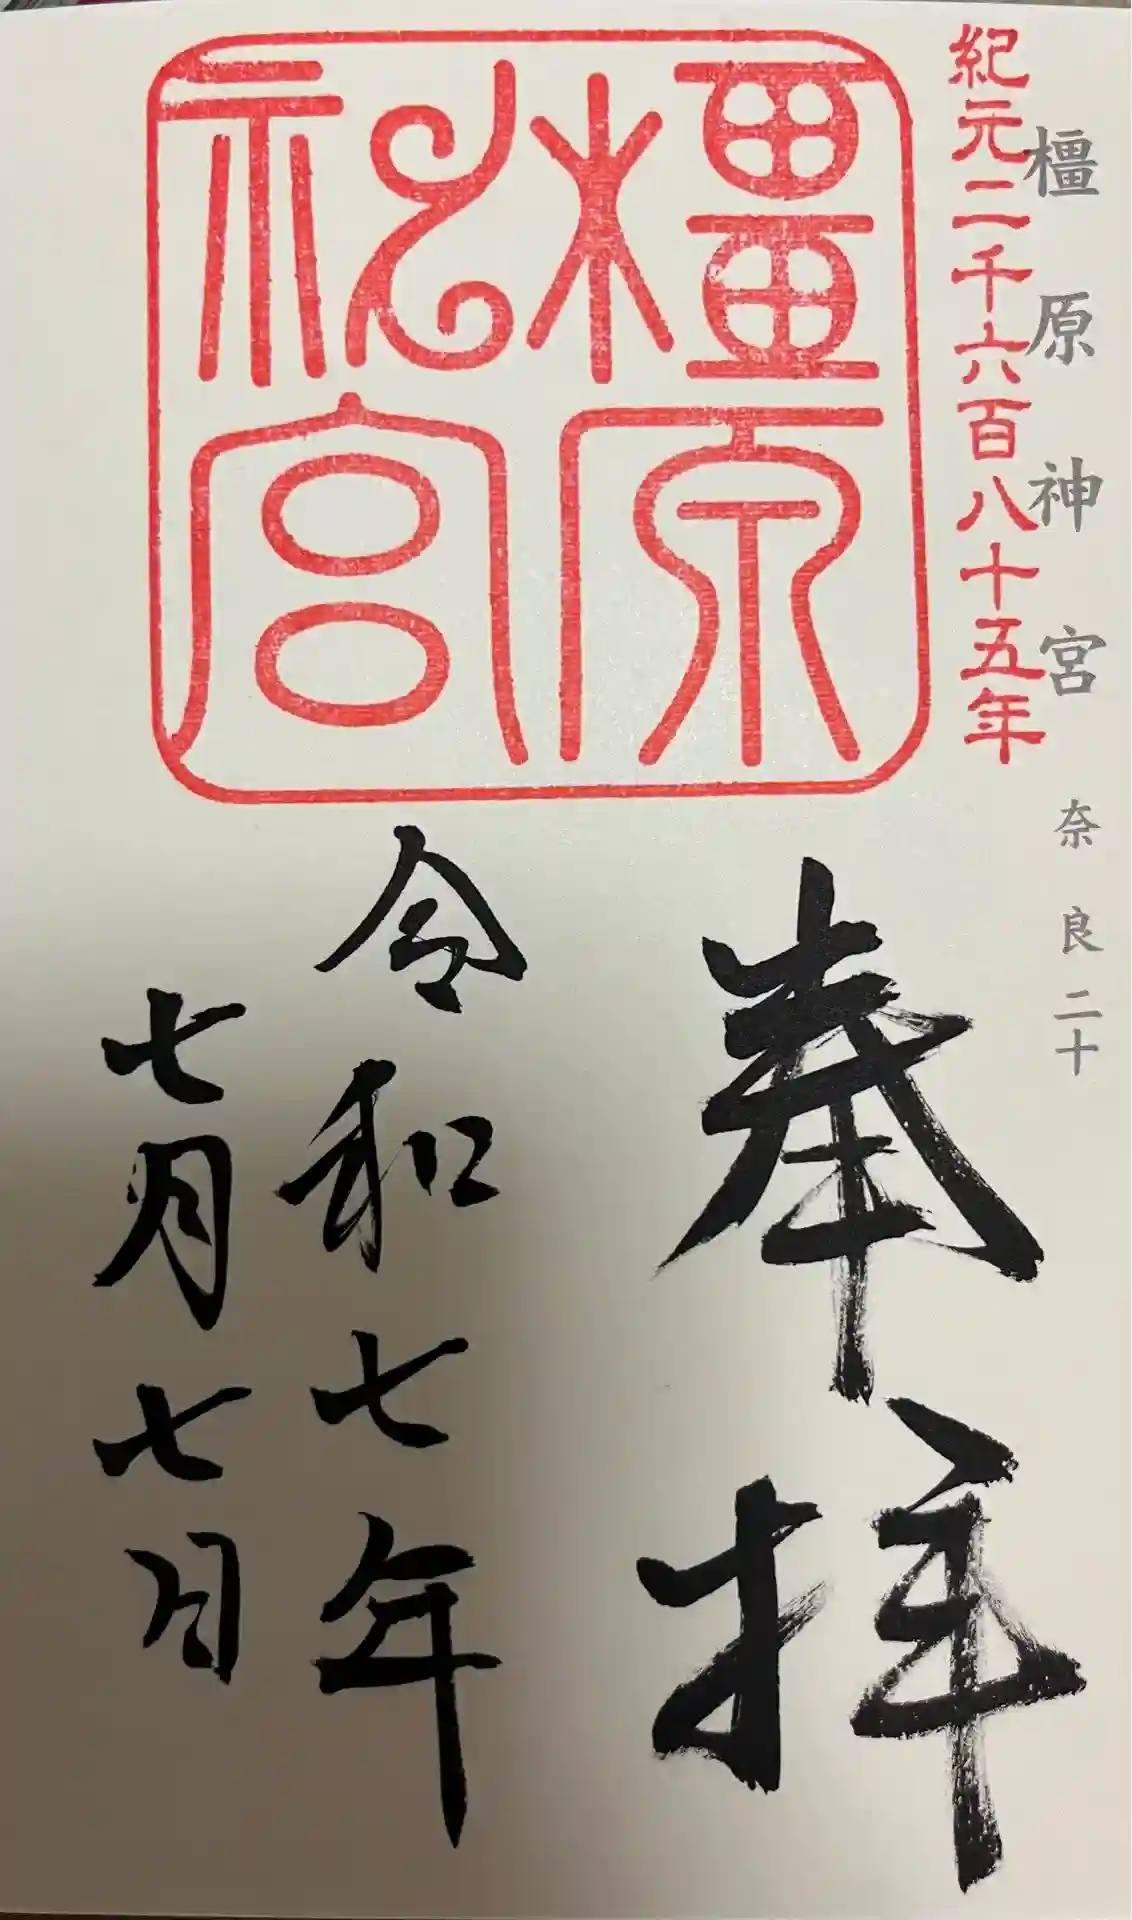 橿原神宮 奈良二十
紀元二千六百八十五年
橿原
神宮
奉拝
令和七年
七月七日